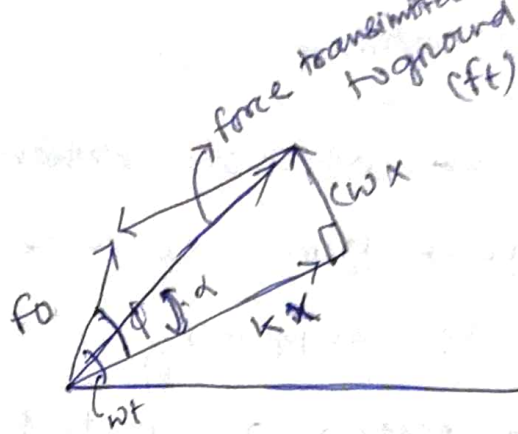 force transimitted
to ground
(ft)
cωx
f0
ϕ
α
kx
ωt